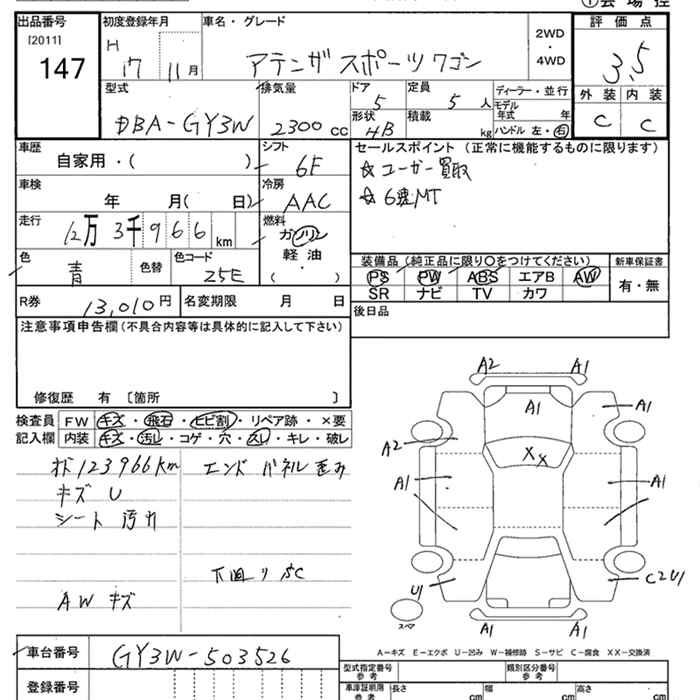 ①会場控
出品番号
[2011]
147
初度登録年月
H 17 11月
車名・グレード
アテンザスポーツワゴン
2WD
・
4WD
評価点
3.5
外装 内装
C C
型式
DBA-GY3W
排気量
2300cc
ドア
5
定員
5人
形状
HB
積載
kg
ディーラー・並行
モデル年式 年
ハンドル 左・右
車歴
自家用・( )
シフト
6F
車検
年 月( 日)
冷房
AAC
走行
12万3千966km
燃料
ガソリン
軽油
・
( )
色
青
色替
色コード
25E
R券
13,010円
名変期限 月 日
セールスポイント(正常に機能するものに限ります)
☆ユーザー買取
☆6速MT
装備品(純正品に限り〇をつけてください)
PS PW ABS エアB AW
SR ナビ TV カワ
新車保証書
有・無
後日品
注意事項申告欄(不具合内容等は具体的に記入して下さい)
修復歴 有 〔箇所 〕
検査員記入欄
FW キズ・飛石・ヒビ割・リペア跡・×要
内装 キズ・汚レ・コゲ・穴・スレ・キレ・破レ
オド123966km
キズU
シート汚れ
AWキズ
エンドパネル歪み
下回りSC
A2 A1
A1 A1
A2
XX
A1 A1
U1 C2U1
スペア
A1 A1
A-キズ E-エクボ U-凹み W-補修跡 S-サビ C-腐食 XX-交換済
車台番号
GY3W-503526
登録番号
型式指定番号
参考
類別区分番号
参考
車庫証明用
参考
長さ cm 幅 cm 高さ cm